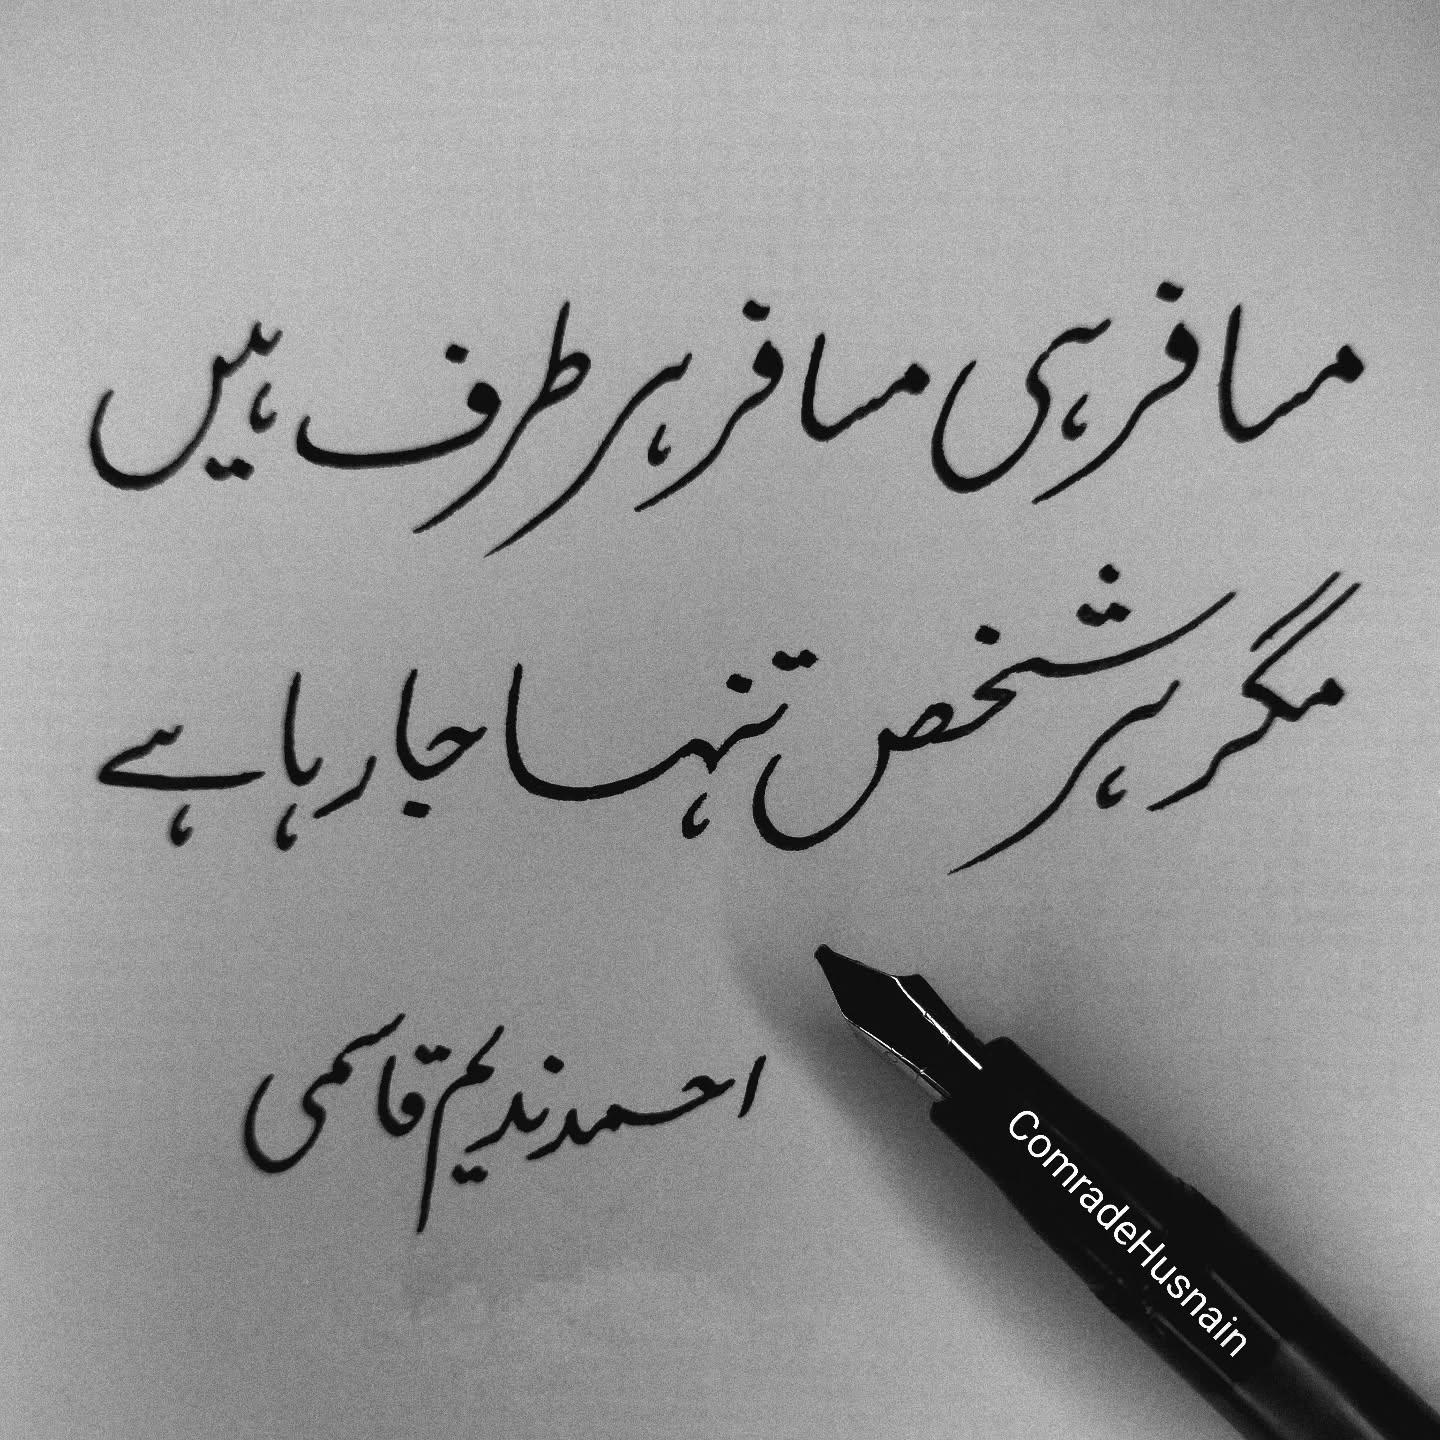 مسافر ہی مسافر ہر طرف ہیں
مگر ہر شخص تنہا جا رہا ہے
احمد ندیم قاسمی
ComradeHusnain